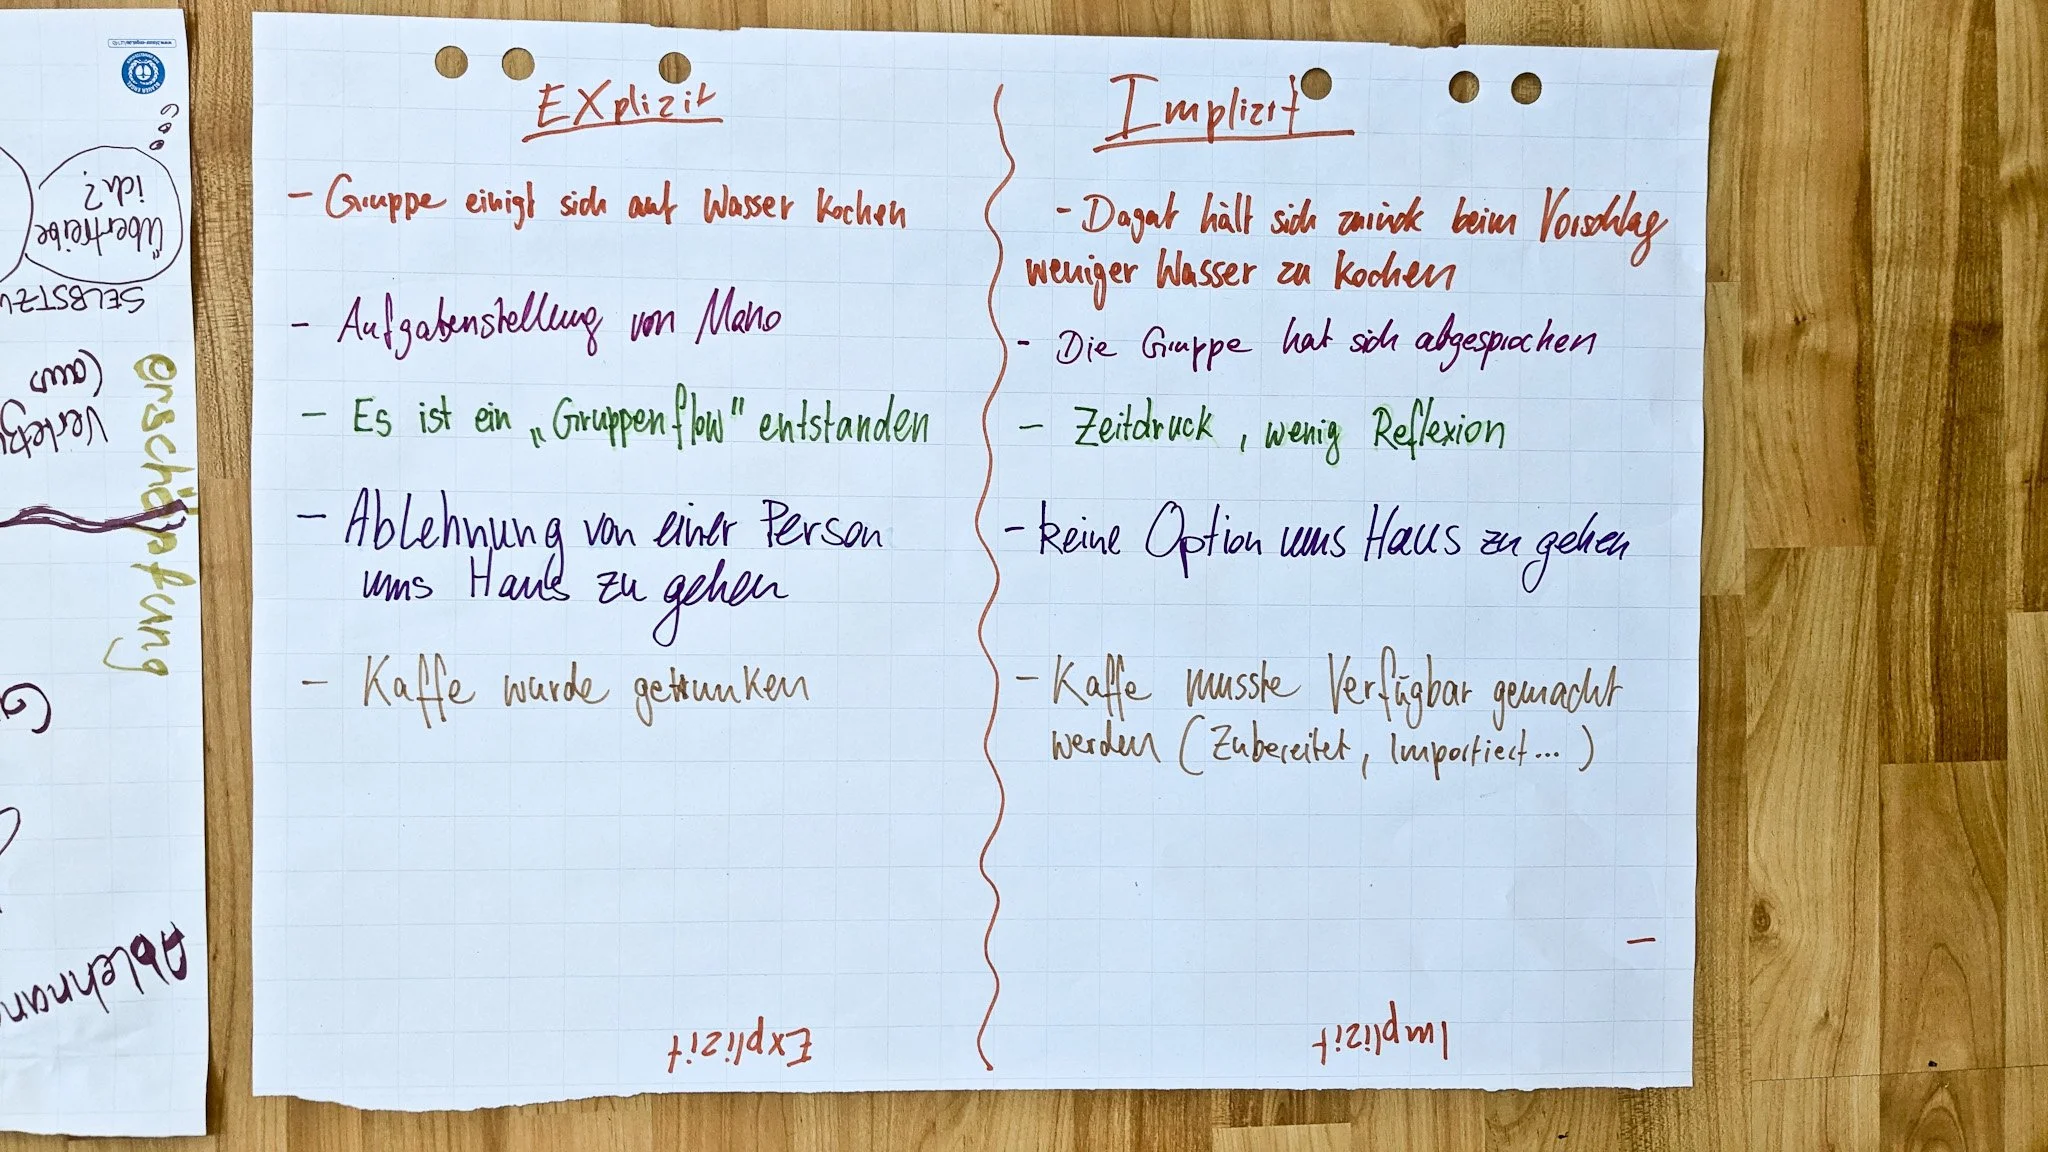 Explizit
- Gruppe einigt sich auf Wasser kochen
- Aufgabenstellung von Mano
- Es ist ein „Gruppenflow" entstanden
- Ablehnung von einer Person
ums Haus zu gehen
- Kaffe wurde getrunken
Explizit
Implizit
- Dagat hält sich zurück beim Vorschlag
weniger Wasser zu kochen
- Die Gruppe hat sich abgesprochen
- Zeitdruck, wenig Reflexion
- keine Option ums Haus zu gehen
- Kaffe musste Verfügbar gemacht
werden (Zubereitet, Importiert...)
-
Implizit
"Übertreibe
ich?
SELBSTZW
(aus
Verletzu
erschöpfung
G
Ablehnun